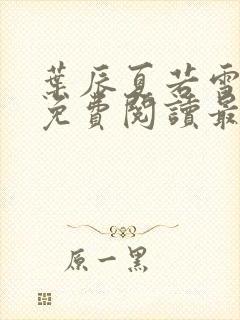 葉辰夏若雪
免費閱讀最
原一黑